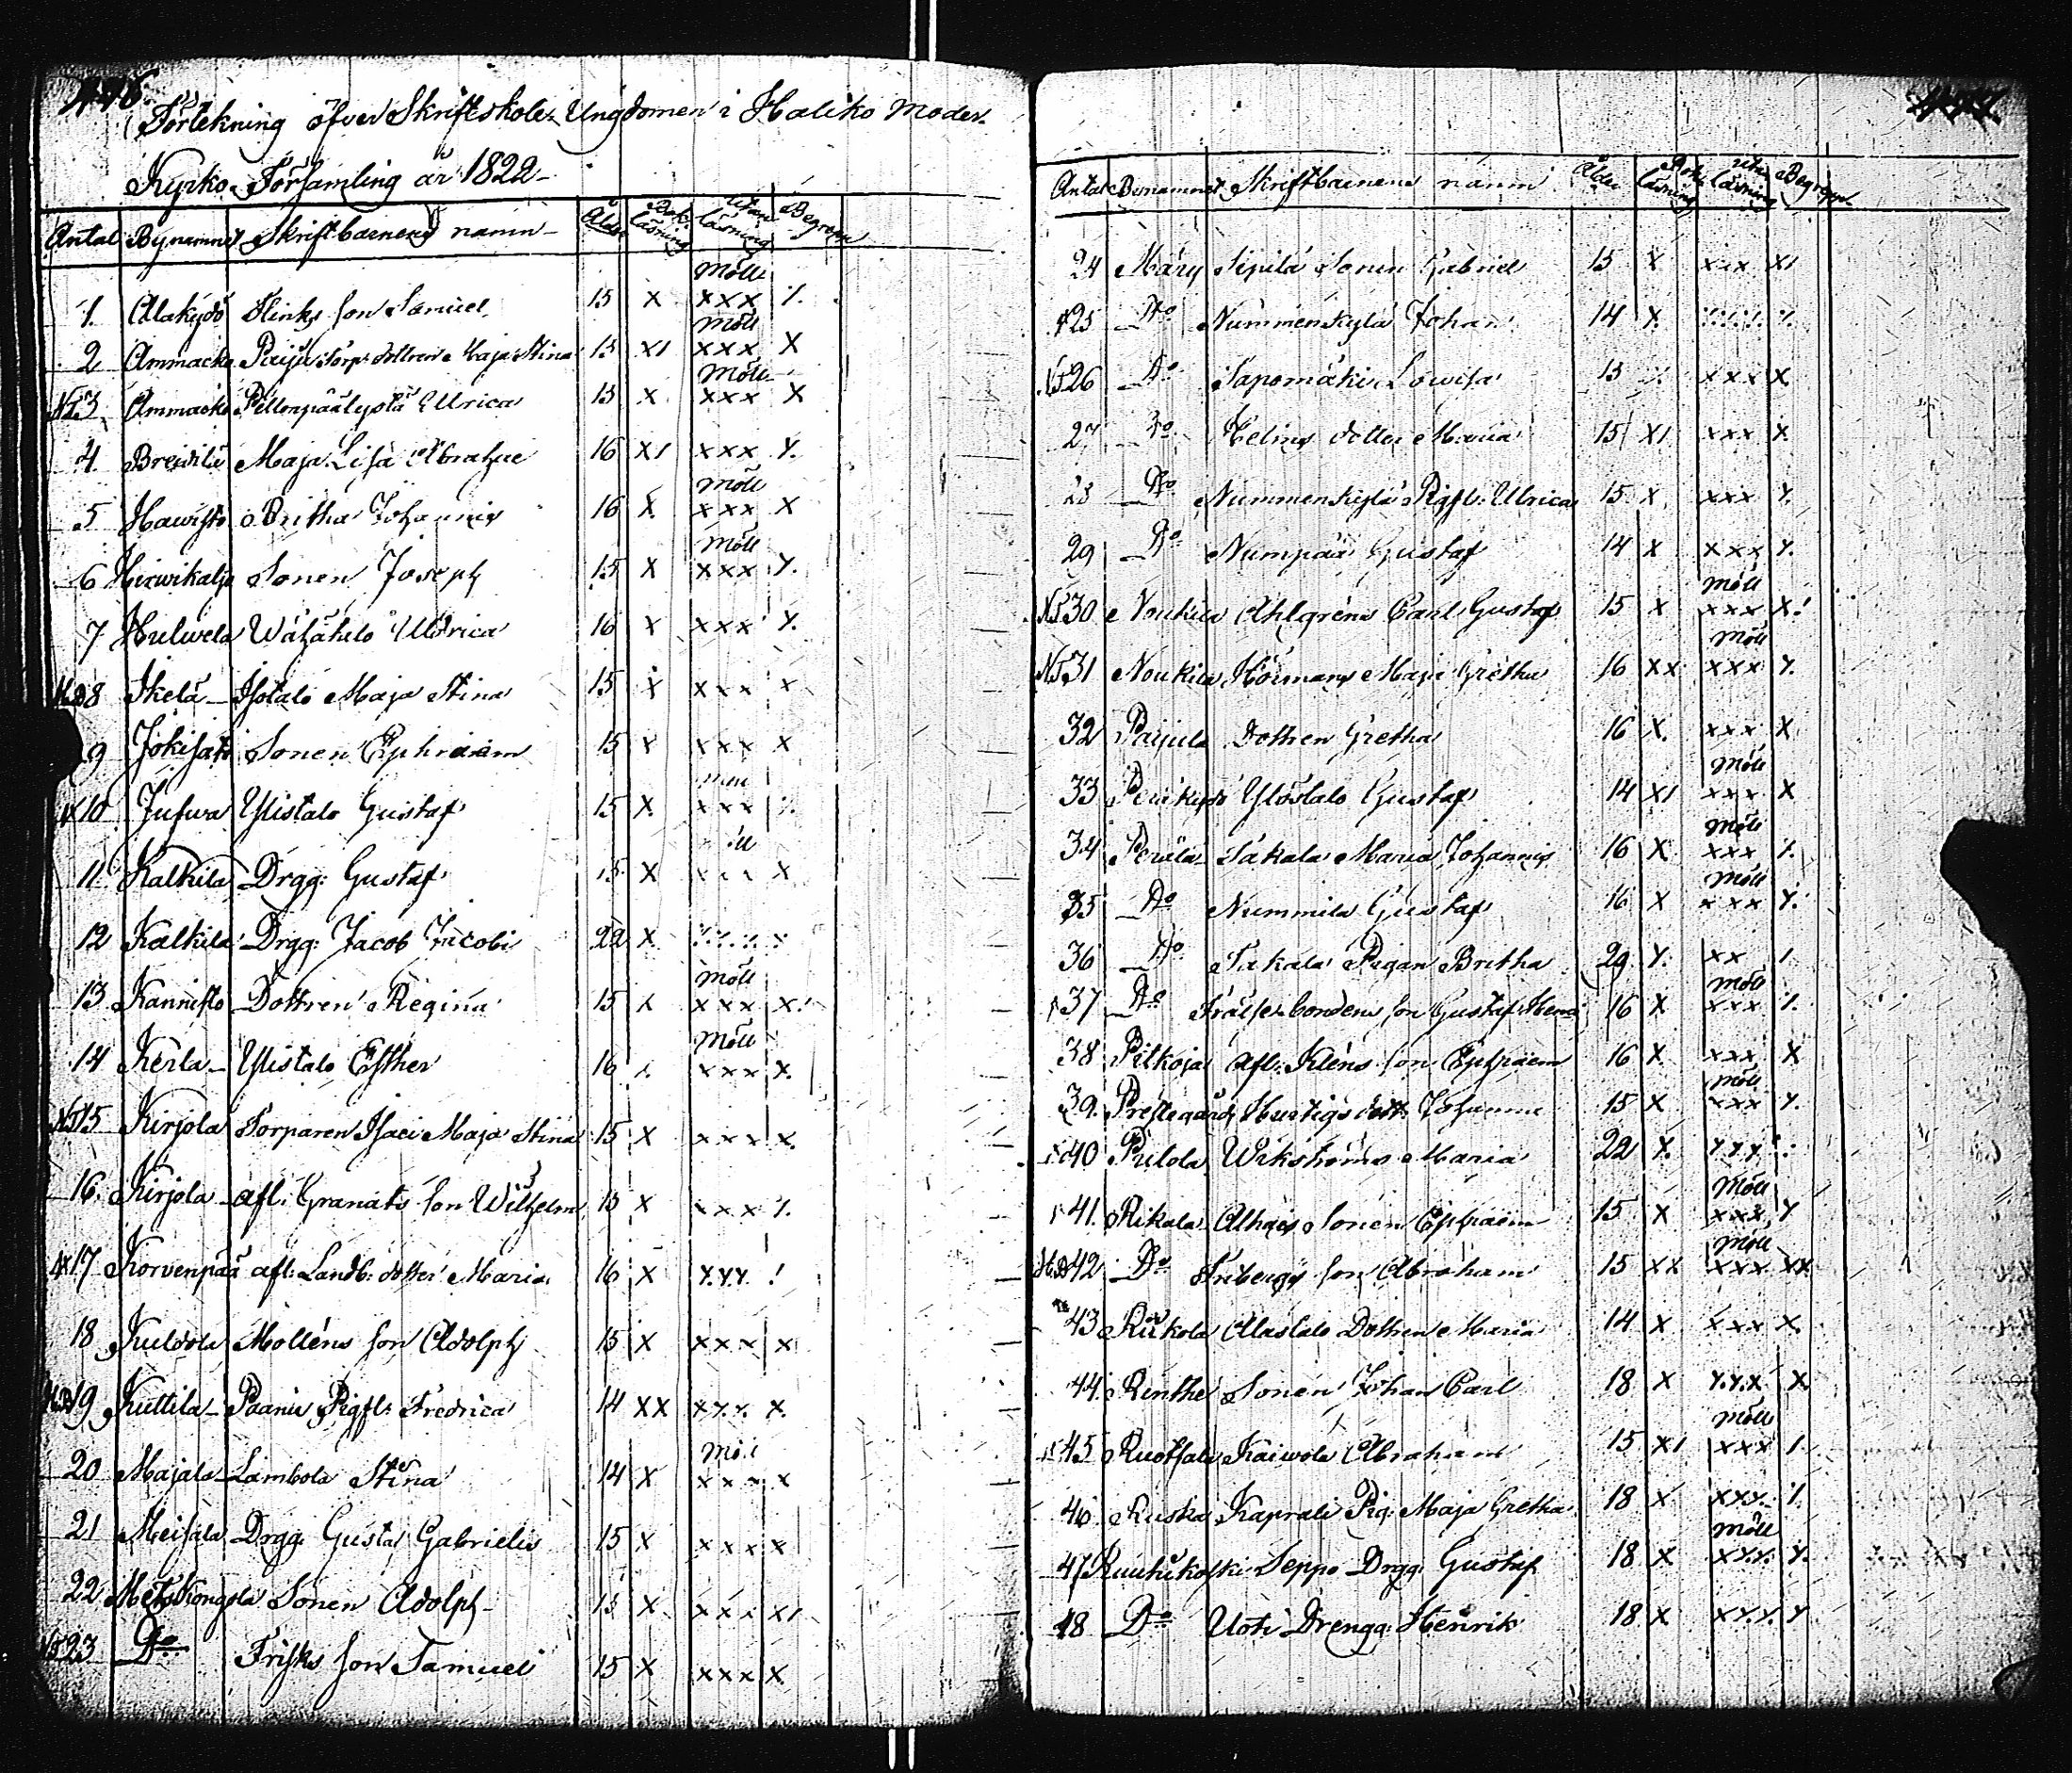 Förtekning öfver Skriftskole Ungdomen i Haliko Moder
Kyrko Församling år 1822
Antal Bynamnet Skriftbarnens namn Ålder Bok läsning Utan läsning Begrepp
1. Alakydö Flinks son Samuel 15 X Möll XXX
2 Ammacko Paiju Torp. dottren Maja Stina 15 XI Möll XXX X
N3 Ammacko Ullrica 15 X Möll XXX X
4 Maja Lisa Abrahae 16 XI XXX X
5 Hawisto Britha Johannis 16 X Möll XXX X
6 Hirwikalja Sonen Joseph 15 X Möll XXX X
7 Hulwela Wähätalo Ullrica 16 X XXX X
8 Ikelä Isotalo Maja Stina 15 X XXX X
9 Sonen Ephraim 15 X XXX X
10 Ylistalo Gustaf 15 X XXX
11 Kalkila Drgg: Gustaf 15 X XXX X
12 Kalkila Drgg: Jacob Jacobi 22 X
13 Kannisto Dottren Regina 15 X Möll XXX X
14 Kerla Ylistalo Esther 16 Möll XXX X
15 Kirjola Torparen Isaci Maja Stina 15 X XXX X
16 Kirjola afl: Granats son Wilhelm 15 X XXX
17 Korvenpää afl: Landb: dotter Maria 16 X XXX
18 Kuldola Molléns son Adolph 15 X XXX X
19 Kuttila Paanu Pigfl: Fredrica 14 XX XXX X
20 Majala Lambola Stina 14 X XXX X
21 Meisala Drgg Gusta Gabrielis 15 X XXX X
22 Sonen Adolph 15 X XXX XI
23 Do Frisks son Samuel 15 X XXX X
Antal Bynamnet Skriftbarnens namn Ålder Bok läsning Utan läsning Begrepp
24 Märy Sipilä Sonen Gabriel 15 X XXX XI
25 Do Nummenkylä Johan 14 X
26 Do Sapomäki Lowisa 15 XXX X
27 Do dotter Maria 15 XI XXX X
28 Do Nummenkylä Pigfl: Ulrica 15 X XXX X
29 Do Numpää Gustaf 14 X XXX X
30 Noukila Ahlgréns Carl Gustaf 15 X Möll XXX X
31 Noukila Hörmans Maja Gretha 16 XX Möll XXX X
32 Paijula Dottren Gretha 16 X XXX X
33 Gustaf 14 XI Möll XXX X
34 Perälä Takala Maria Johannis 16 X Möll XXX
35 Do Nummila Gustaf 16 X Möll XXX X
36 Do Takala Pigan Britha 29 X XX
37 Do Frälse bondens son Gustaf 16 X Möll XXX
38 Pitkoja afl: Kléns son Ephraem 16 X XXX X
39. Prestegård Hurtigs dott: Johanna 15 X Möll XXX X
40 Pulola Wikströms Maria 22 X XXX
41. Rikala Sonen Ephraem 15 X Möll XXX X
42 Do son Abraham 15 XX Möll XXX XX
43 Rükola Alastalo Dottren Maria 14 X XXX X
44. Renthe Sonen Johan Carl 18 X XXX X
45 Ruotsala Kaiwola Abraham 15 XI Möll XXX
46 Ruska Kaprali Pig: Maja Gretha 18 X XXX
47 Seppo Drgg: Gustaf 18 X Möll XXX X
48 Do Uoti Drengg: Henrik 18 X XXX X